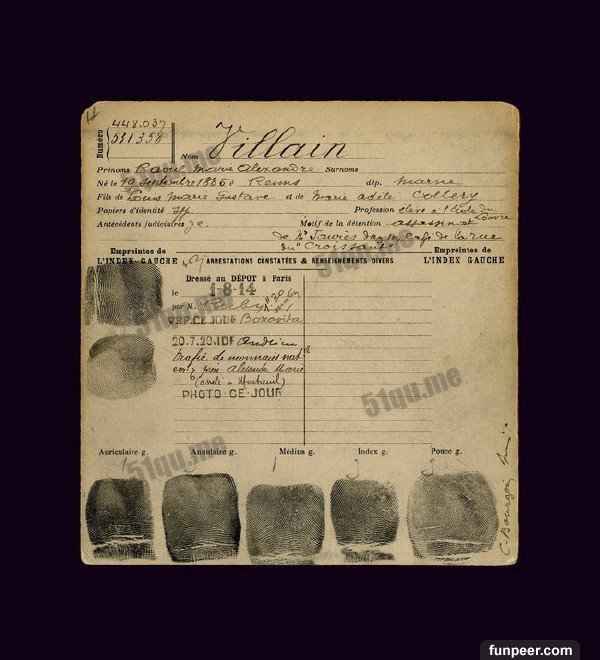 448.037
Numéro
531358
Nom Villain
Prénoms Raoul Marie Alexandre Surnoms
Né le 19 septembre 1885 à Reims dép. Marne
Fils de Louis Marie Gustave et de Marie Adèle Collery
Papiers d'identité Profession élève à l'école du Louvre
Antécédents judiciaires Motif de la détention assassinat
de Mr Jaurès dans un café de la rue
du "Croissant"
Empreintes de
L'INDEX GAUCHE
ARRESTATIONS CONSTATÉES & RENSEIGNEMENTS DIVERS
Empreintes de
L'INDEX GAUCHE
Dressé au DÉPOT à Paris
le 1-8-14
par M.
VER.CE JOUR Bonavita
20.7.20 IDF Andrieu
trafic de monnaies
Alexandre Marie
PHOTO-CE-JOUR
Auriculaire g. Annulaire g. Médius g. Index g. Pouce g.
51qu.me
51qu.me
51qu.me
51qu.me
51qu.me
51qu.me
funpeer.com